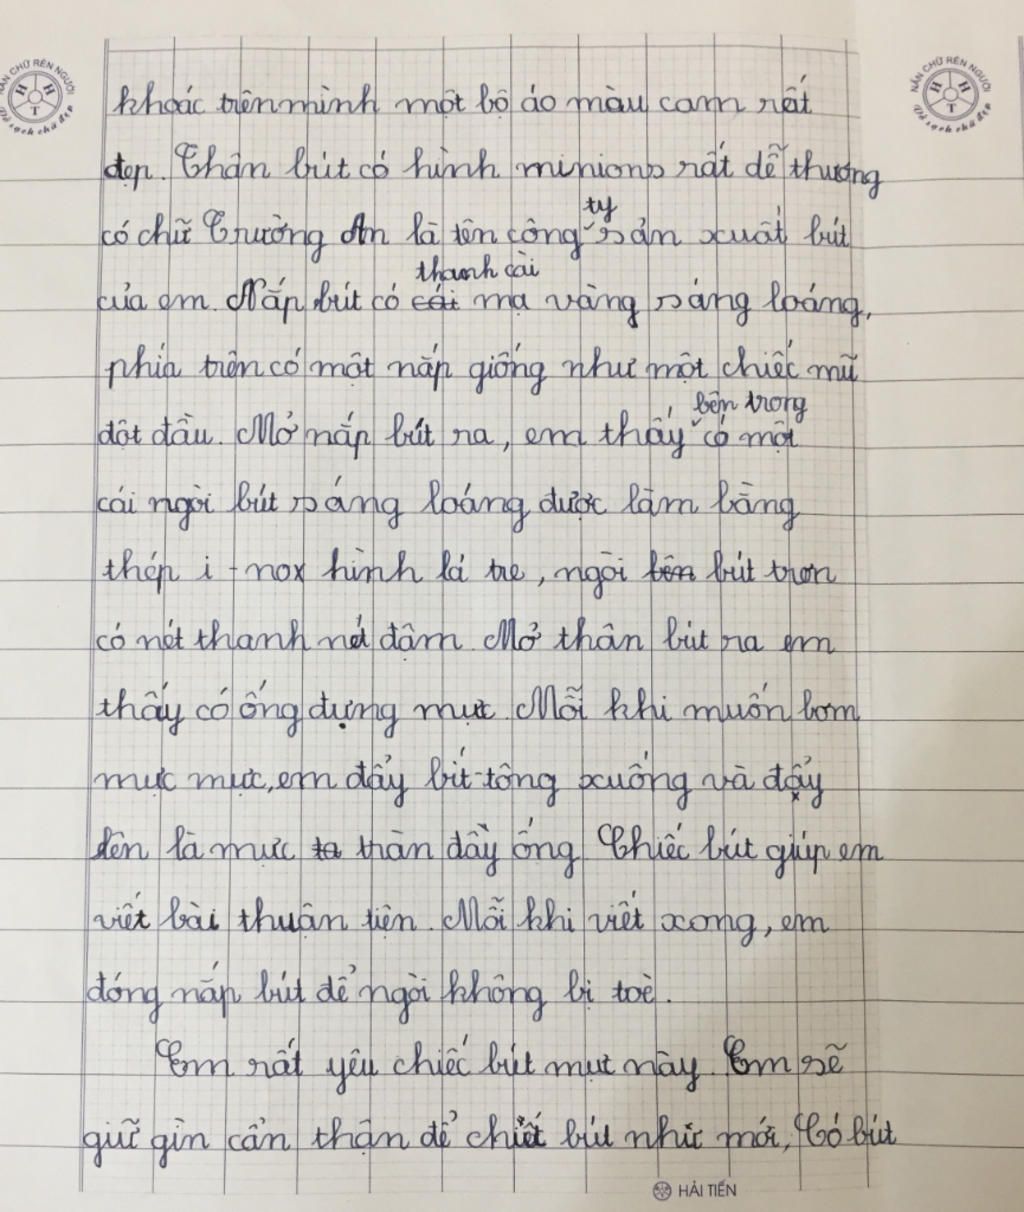 RÈN CHỮ RÈN NGƯỜI
H H T
Vở sạch chữ đẹp
NẮN CHỮ RÈN NGƯỜI
H H T
Vở sạch chữ đẹp
khoác trên mình một bộ áo màu cam rất
đẹp. Thân bút có hình minions rất dễ thương
ty
có chữ Trường An là tên công sản xuất bút
thanh cài
của em. Nắp bút có cái mạ vàng sáng loáng,
phía trên có một nắp giống như một chiếc mũ
bên trong
đột đầu. Mở nắp bút ra, em thấy có một
cái ngòi bút sáng loáng được làm bằng
thép i-nox hình lá tre, ngòi bên bút trơn
có nét thanh nét đậm. Mở thân bút ra em
thấy có ống đựng mực. Mỗi khi muốn bơm
mực mực, em đẩy bít-tông xuống và đẩy
lên là mực ta tràn đầy ống. Chiếc bút giúp em
viết bài thuận tiện. Mỗi khi viết xong, em
đóng nắp bút để ngòi không bị toè.
Em rất yêu chiếc bút mực này. Em sẽ
giữ gìn cẩn thận để chiếc bút như mới. Có bút
HẢI TIẾN